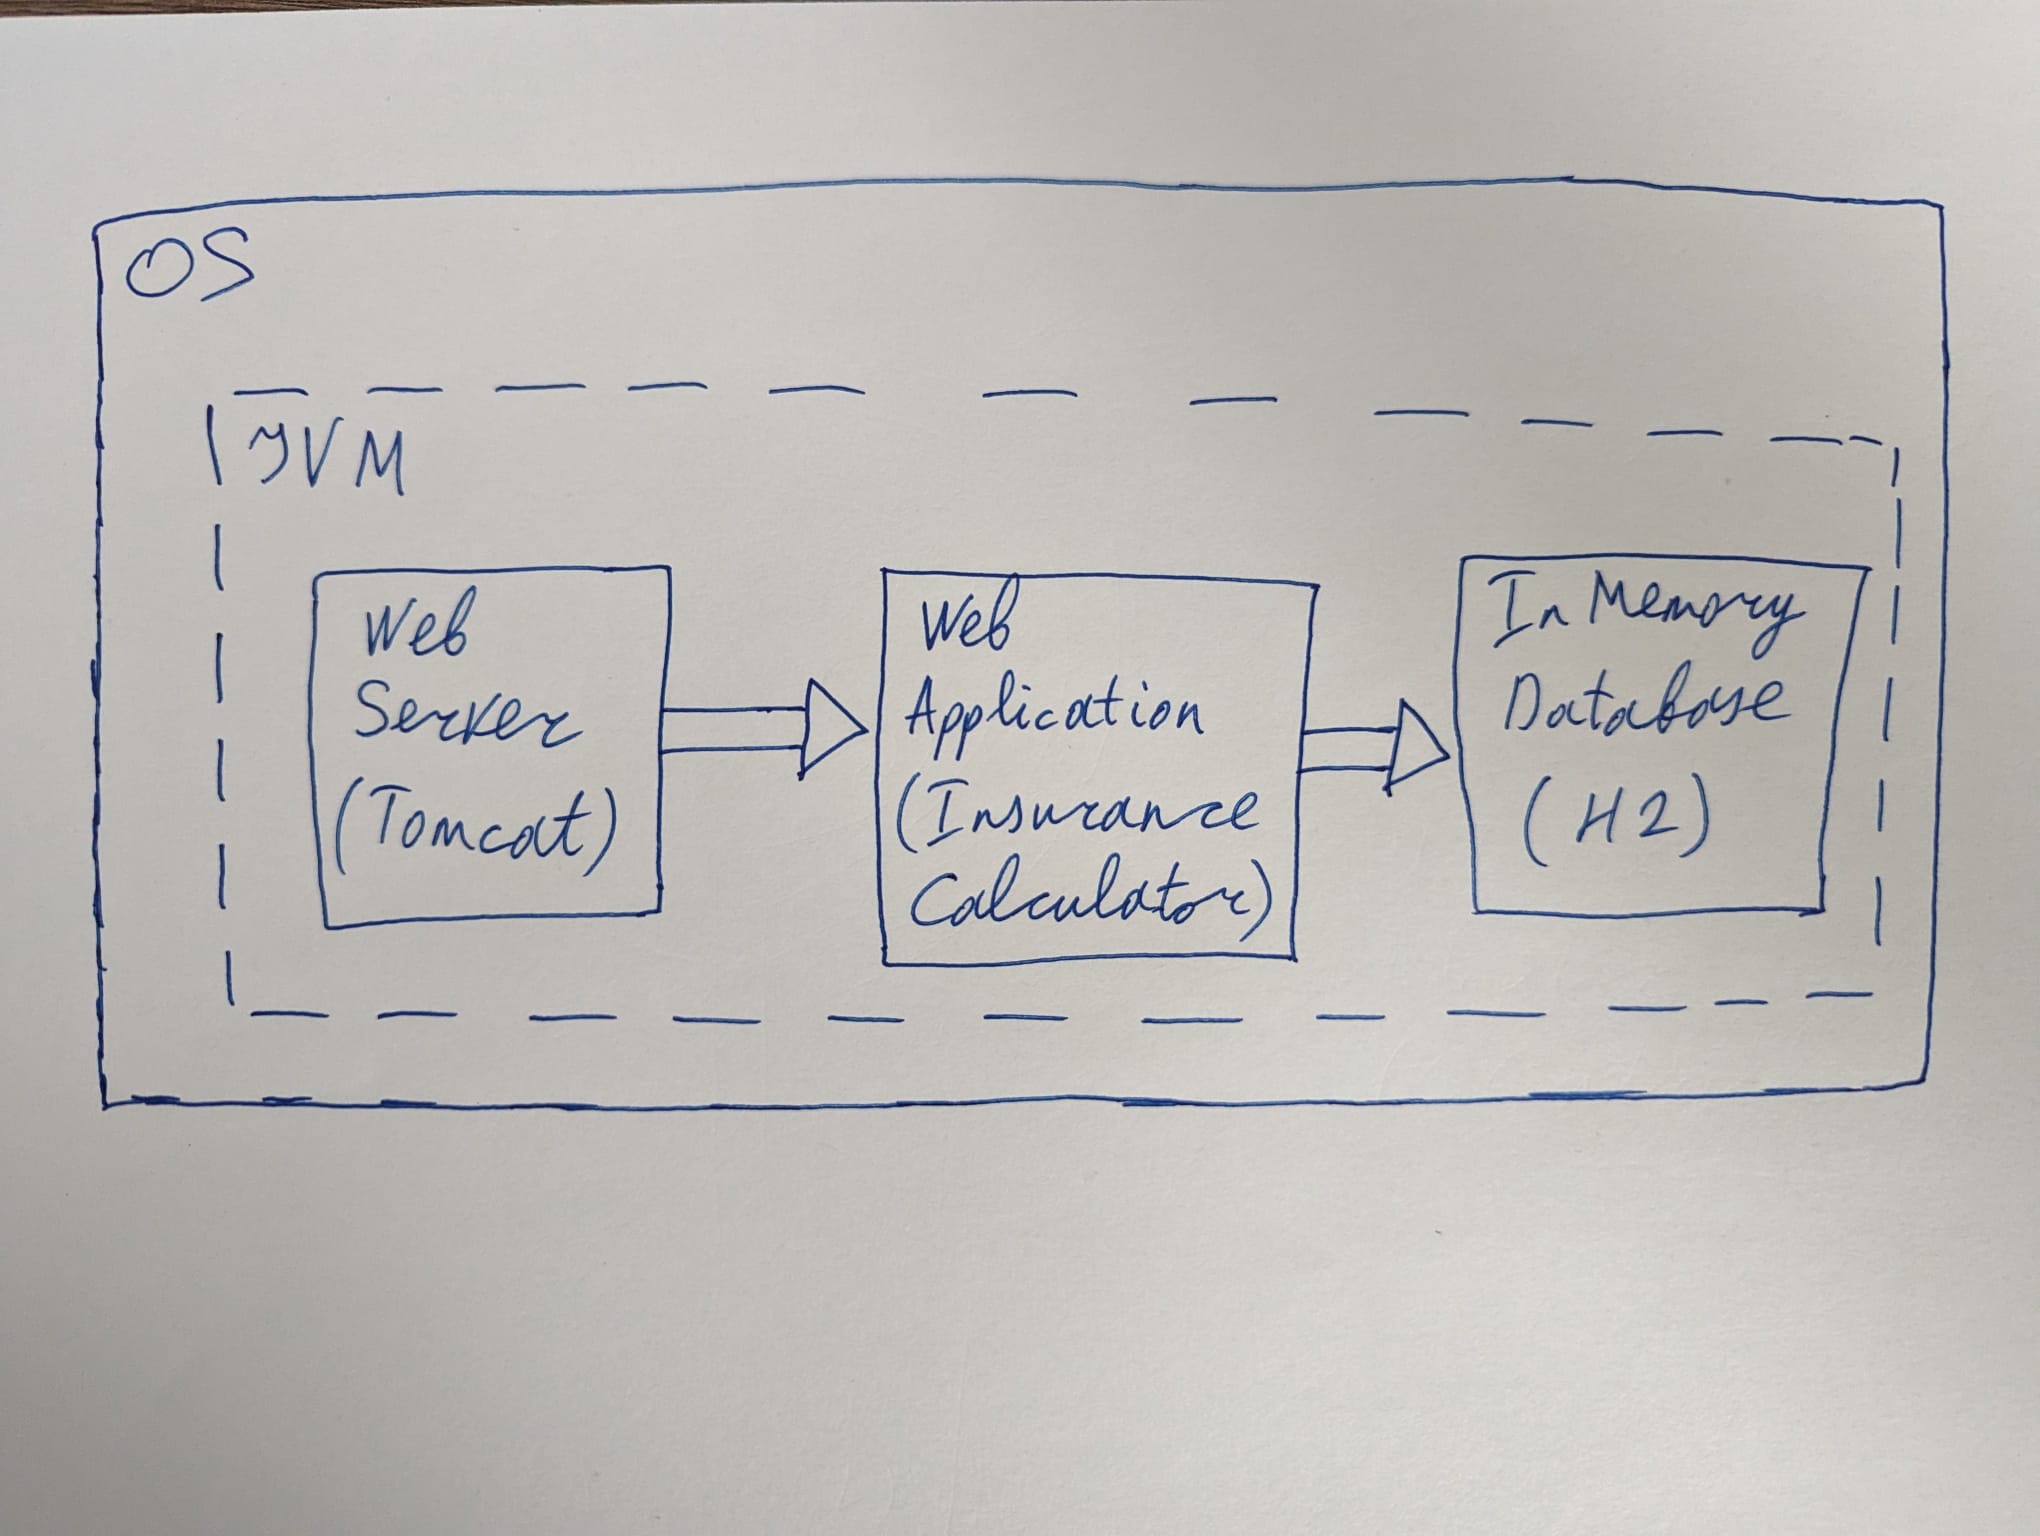 OS
JVM
Web
Server
(Tomcat)
Web
Application
(Insurance
Calculator)
In Memory
Database
(H2)